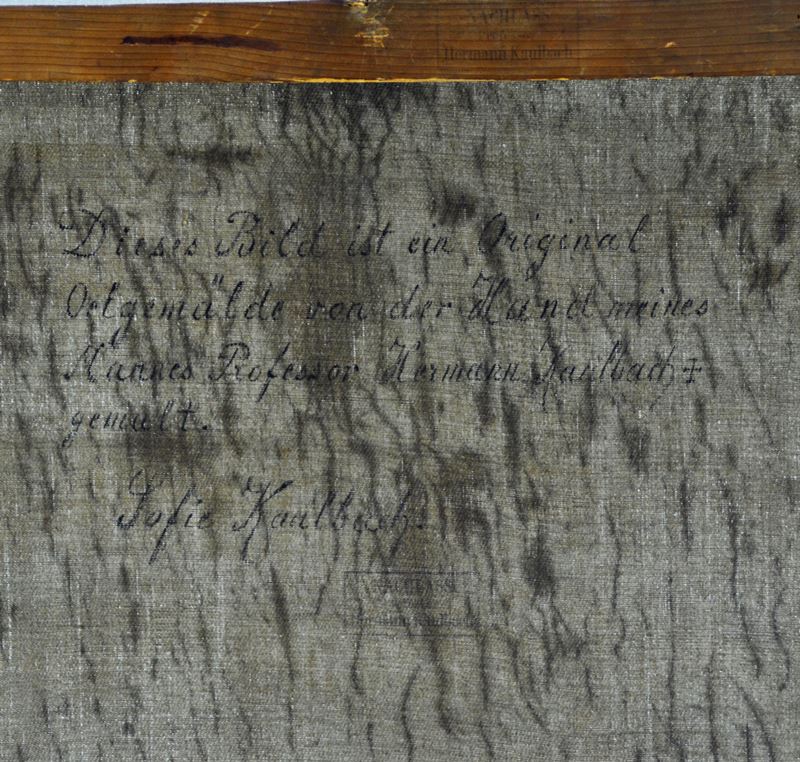 NACHLASS
Hermann Kaulbach
Dieses Bild ist ein Original
Oelgemälde von der Hand meines
Mannes Professor Hermann Kaulbach ✝
gemalt.
Sofie Kaulbach.
NACHLASS
Hermann Kaulbach